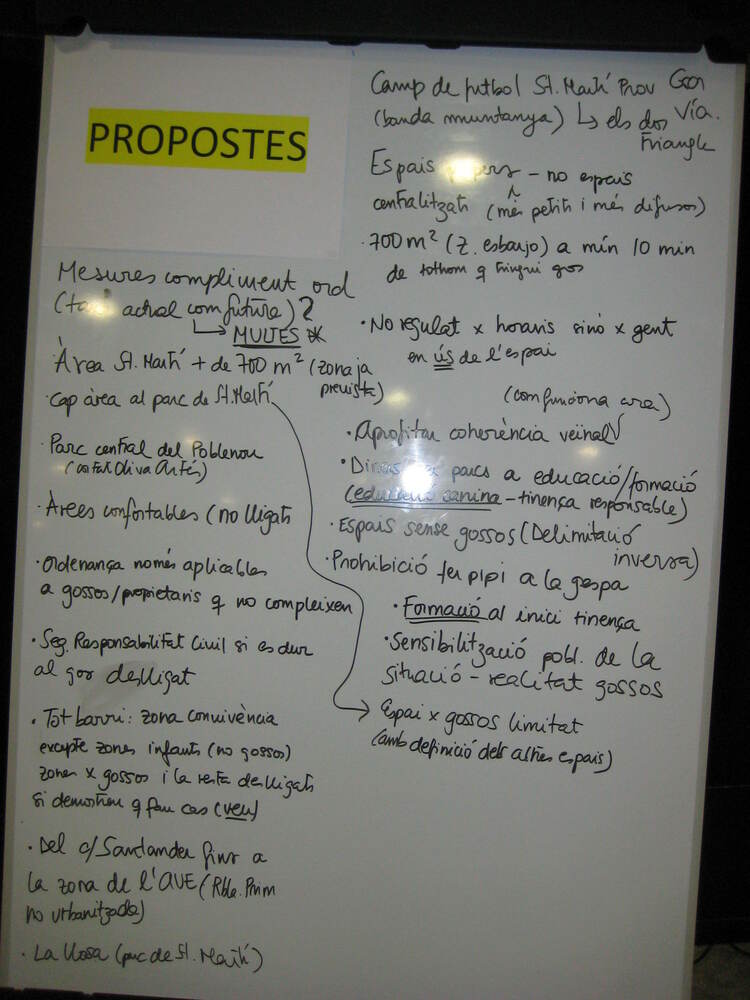 PROPOSTES
Mesures compliment ord
(tant actual com futura)?
↳ MULTES
Àrea St. Martí + de 700 m² (zona ja
prevista)
· Cap àrea al parc de St. Martí
· Parc central del Poblenou
(costat Oliva Artés)
· Àrees confortables (no lligats
· Ordenança només aplicables
a gossos/propietaris q no compleixen
· Seg. Responsabilitat Civil si es dur
al gos deslligat
· Tot barri: zona convivència
excepte zones infants (no gossos)
zones x gossos i la resta deslligats
si demostren q fan cas (veu)
· Del c/Santander fins a
la zona de l'AVE (Rbla. Prim
no urbanitzada)
· La Llosa (parc de St. Martí)
Camp de futbol St. Martí Prov Gran
(banda muntanya) ↳ els dos Via.
Triangle
Espais - no espais
centralitzats (més petits i més difusos)
· 700 m² (z. esbarjo) a mín 10 min
de tothom q tingui gos
· No regulat x horaris sinò x gent
en ús de l'espai
(com funciona ara)
· Aprofitar coherència veïnal
· parcs a educació/formació
(educació canina - tinença responsable)
· Espais sense gossos (Delimitació
inversa)
· Prohibició fer pipi a la gespa
· Formació al inici tinença
· Sensibilització pobl. de la
situació - realitat gossos
→ Espai x gossos limitat
(amb definició dels altres espais)